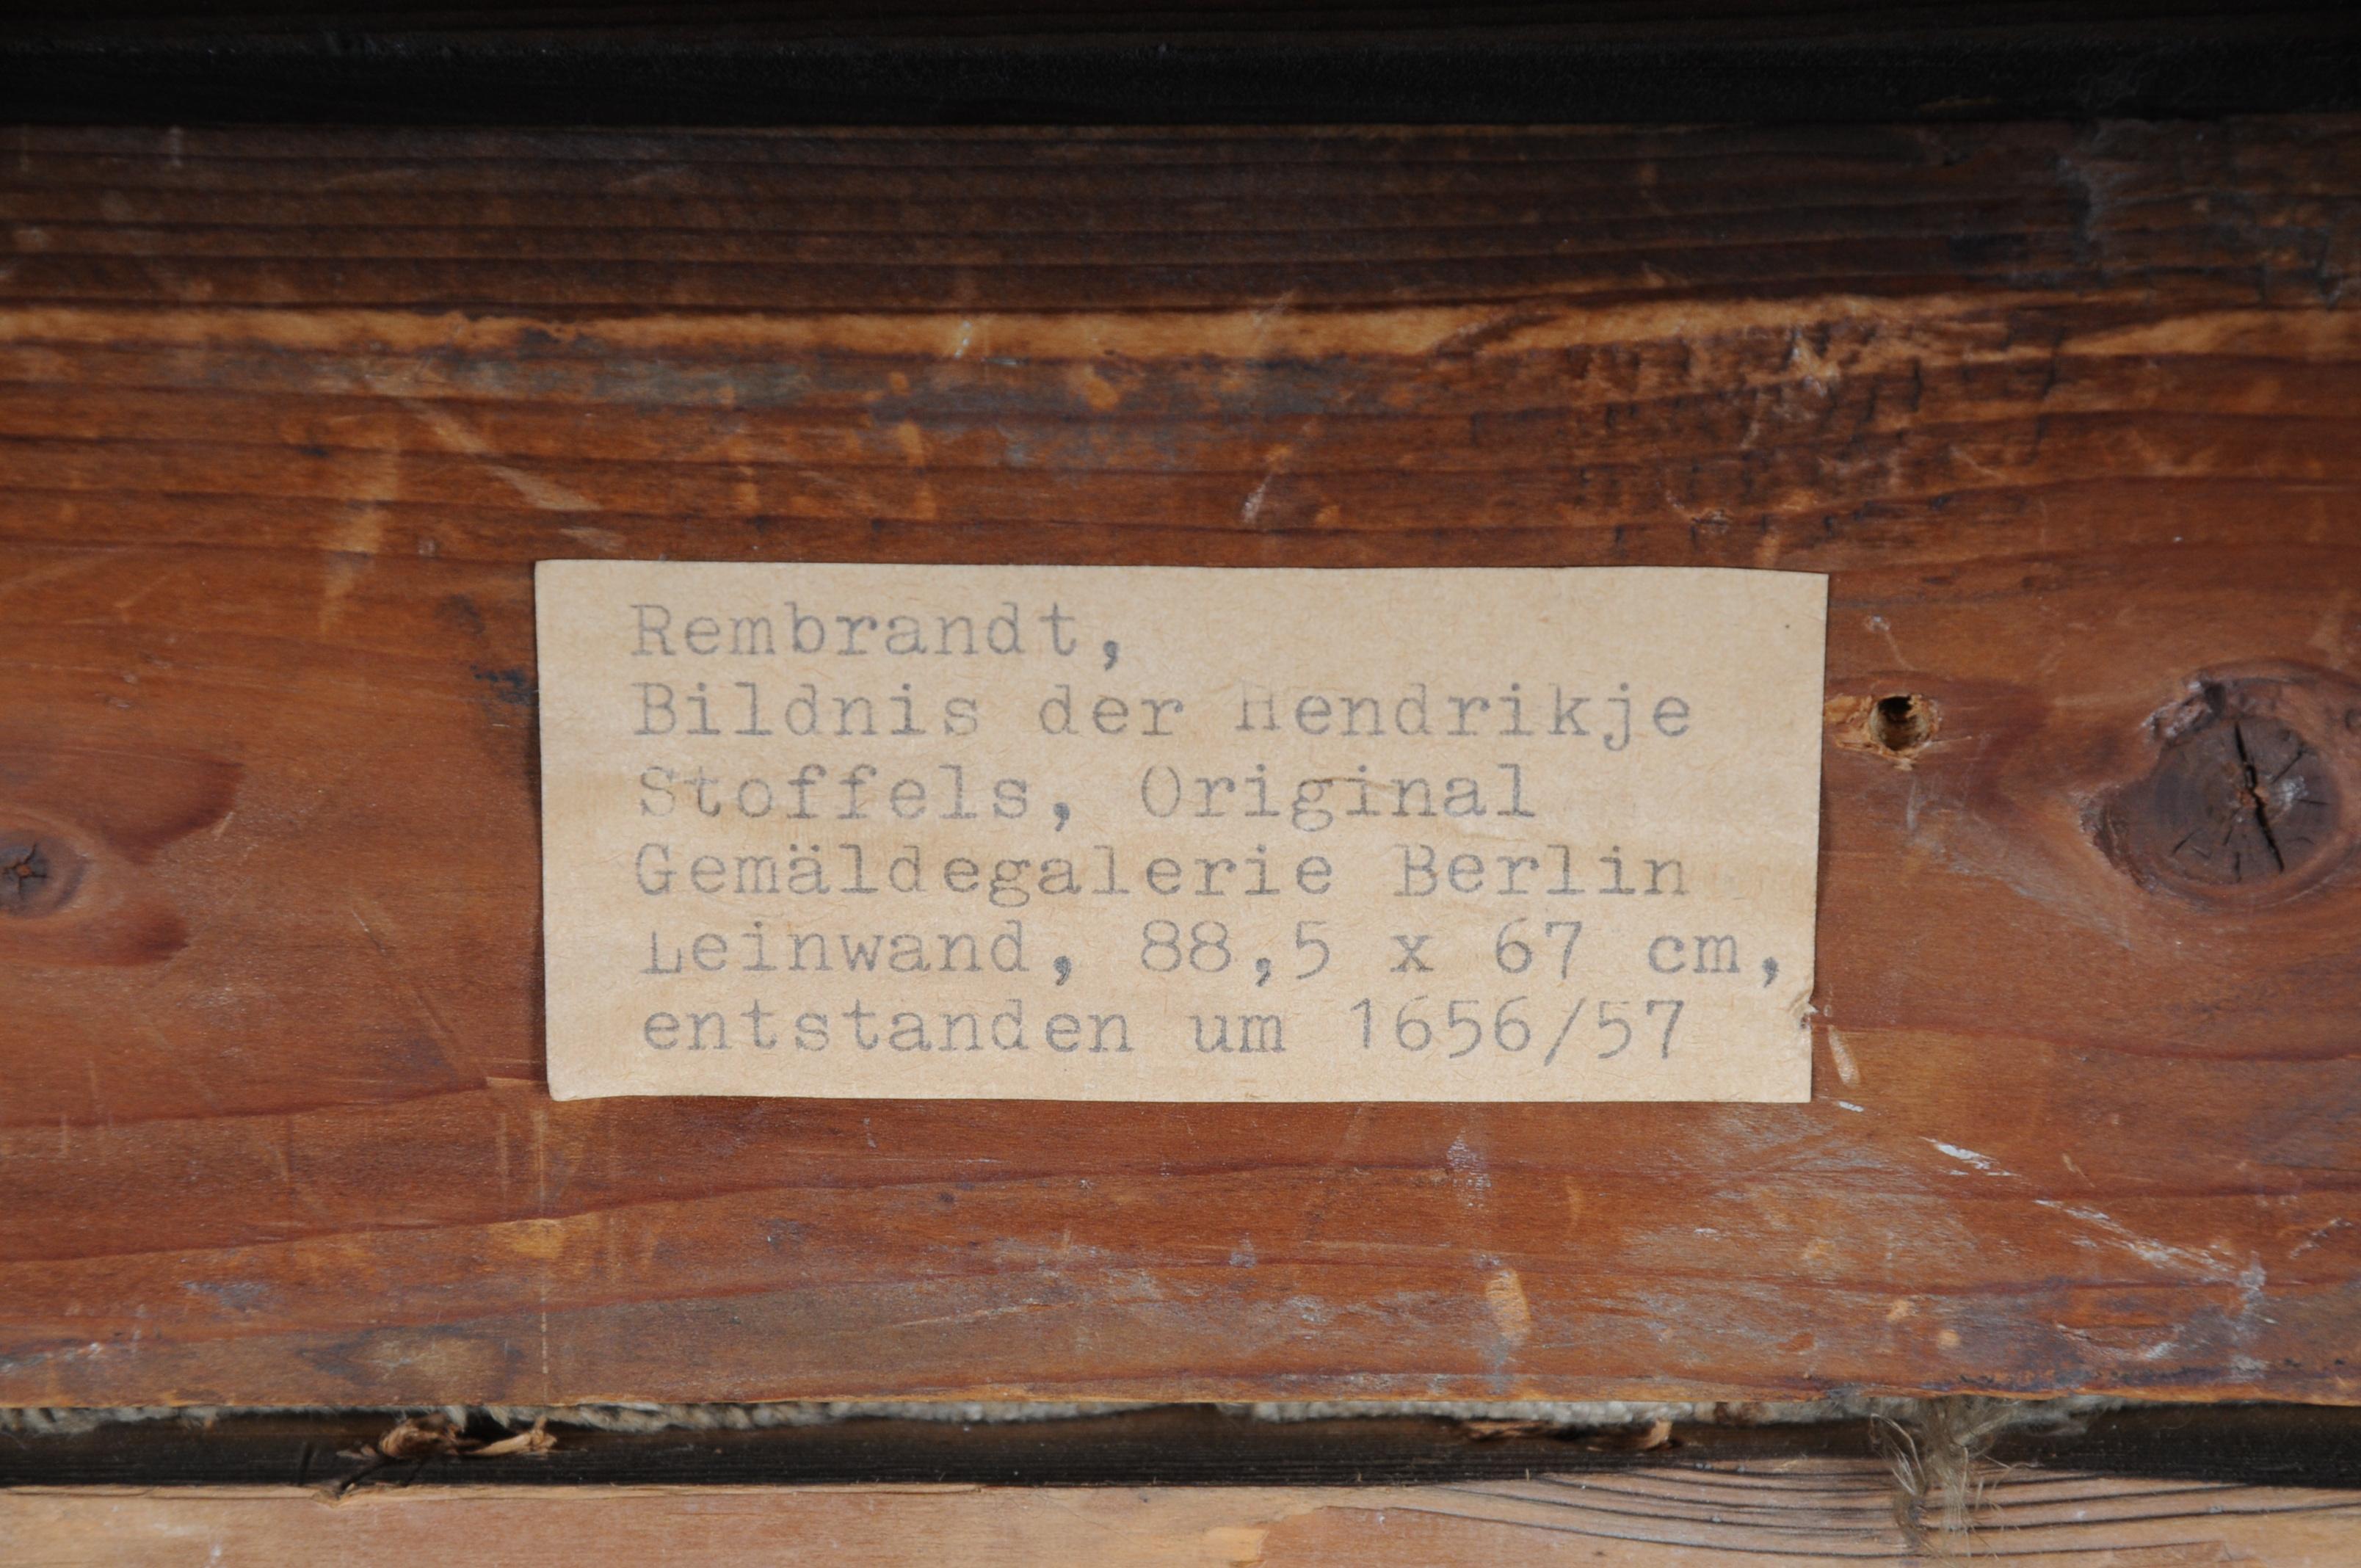 Rembrandt,
Bildnis der Hendrikje
Stoffels, Original
Gemäldegalerie Berlin
Leinwand, 88,5 x 67 cm,
entstanden um 1656/57